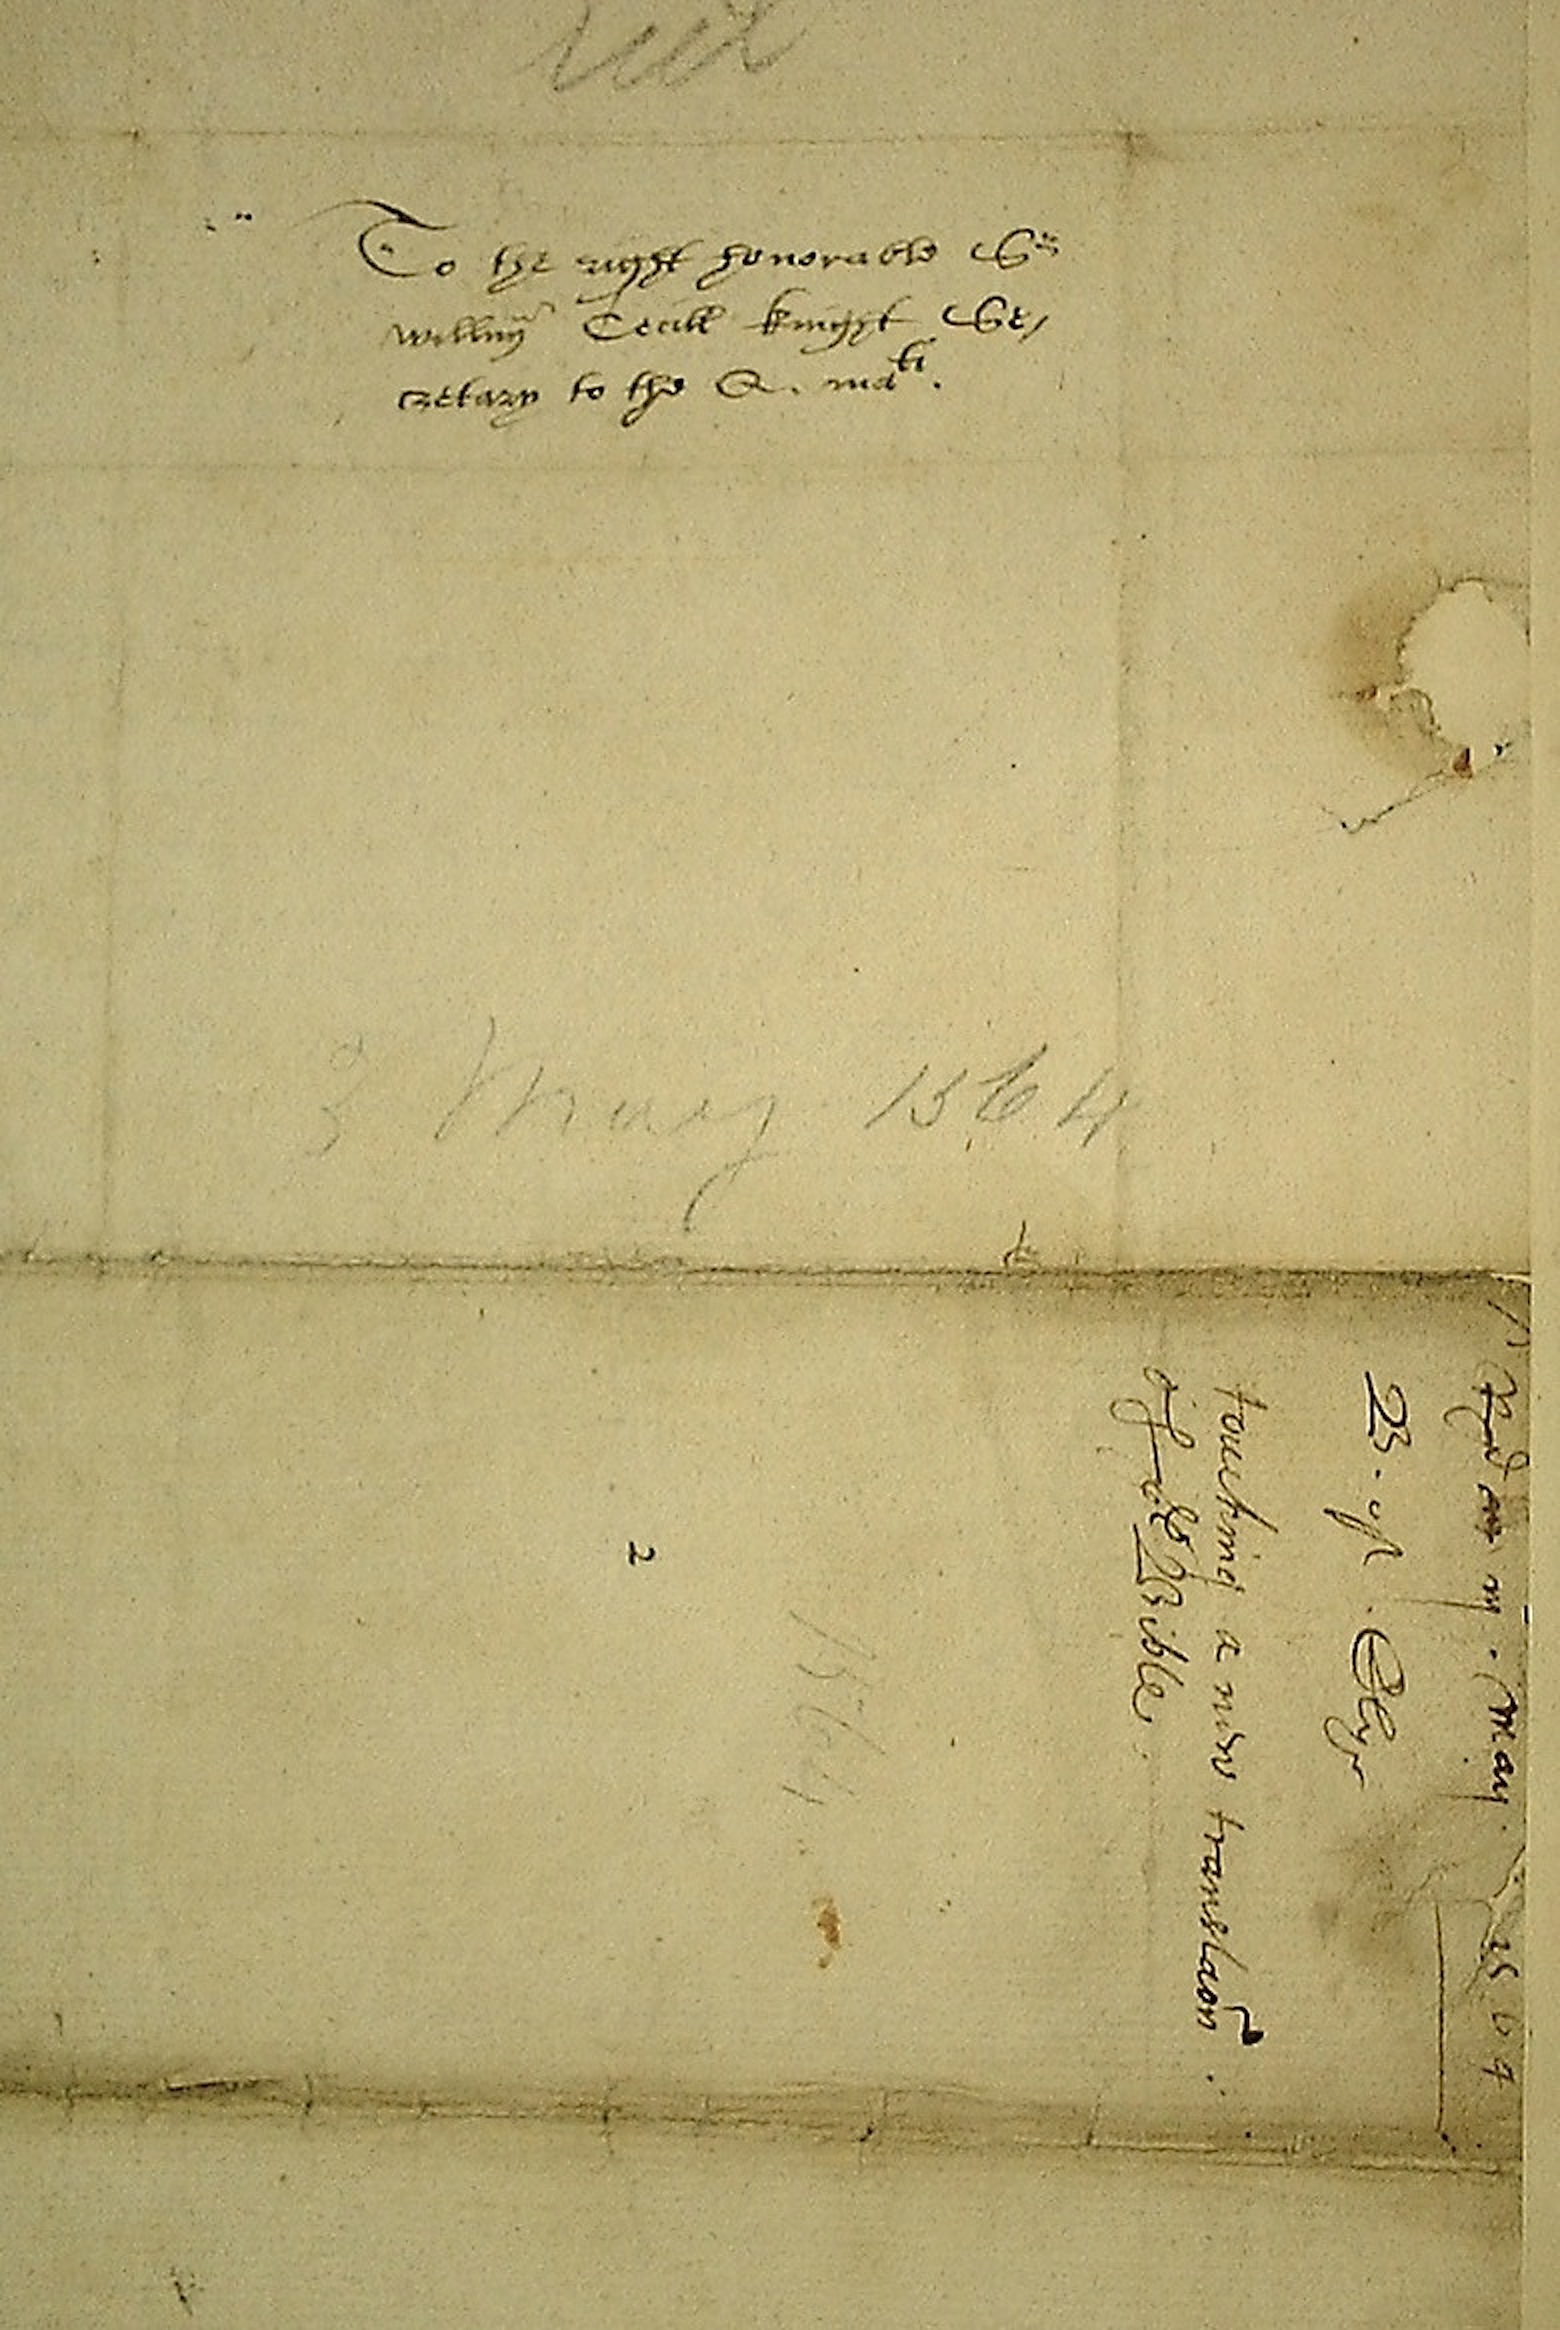 To the right honorable Sr
willm Cecill knight Se/
cretary to the Q. matie.
3 May 1564
iij. May. 1564
B. of Ely
touching a new translaon.
of ye Bible.
1564
2